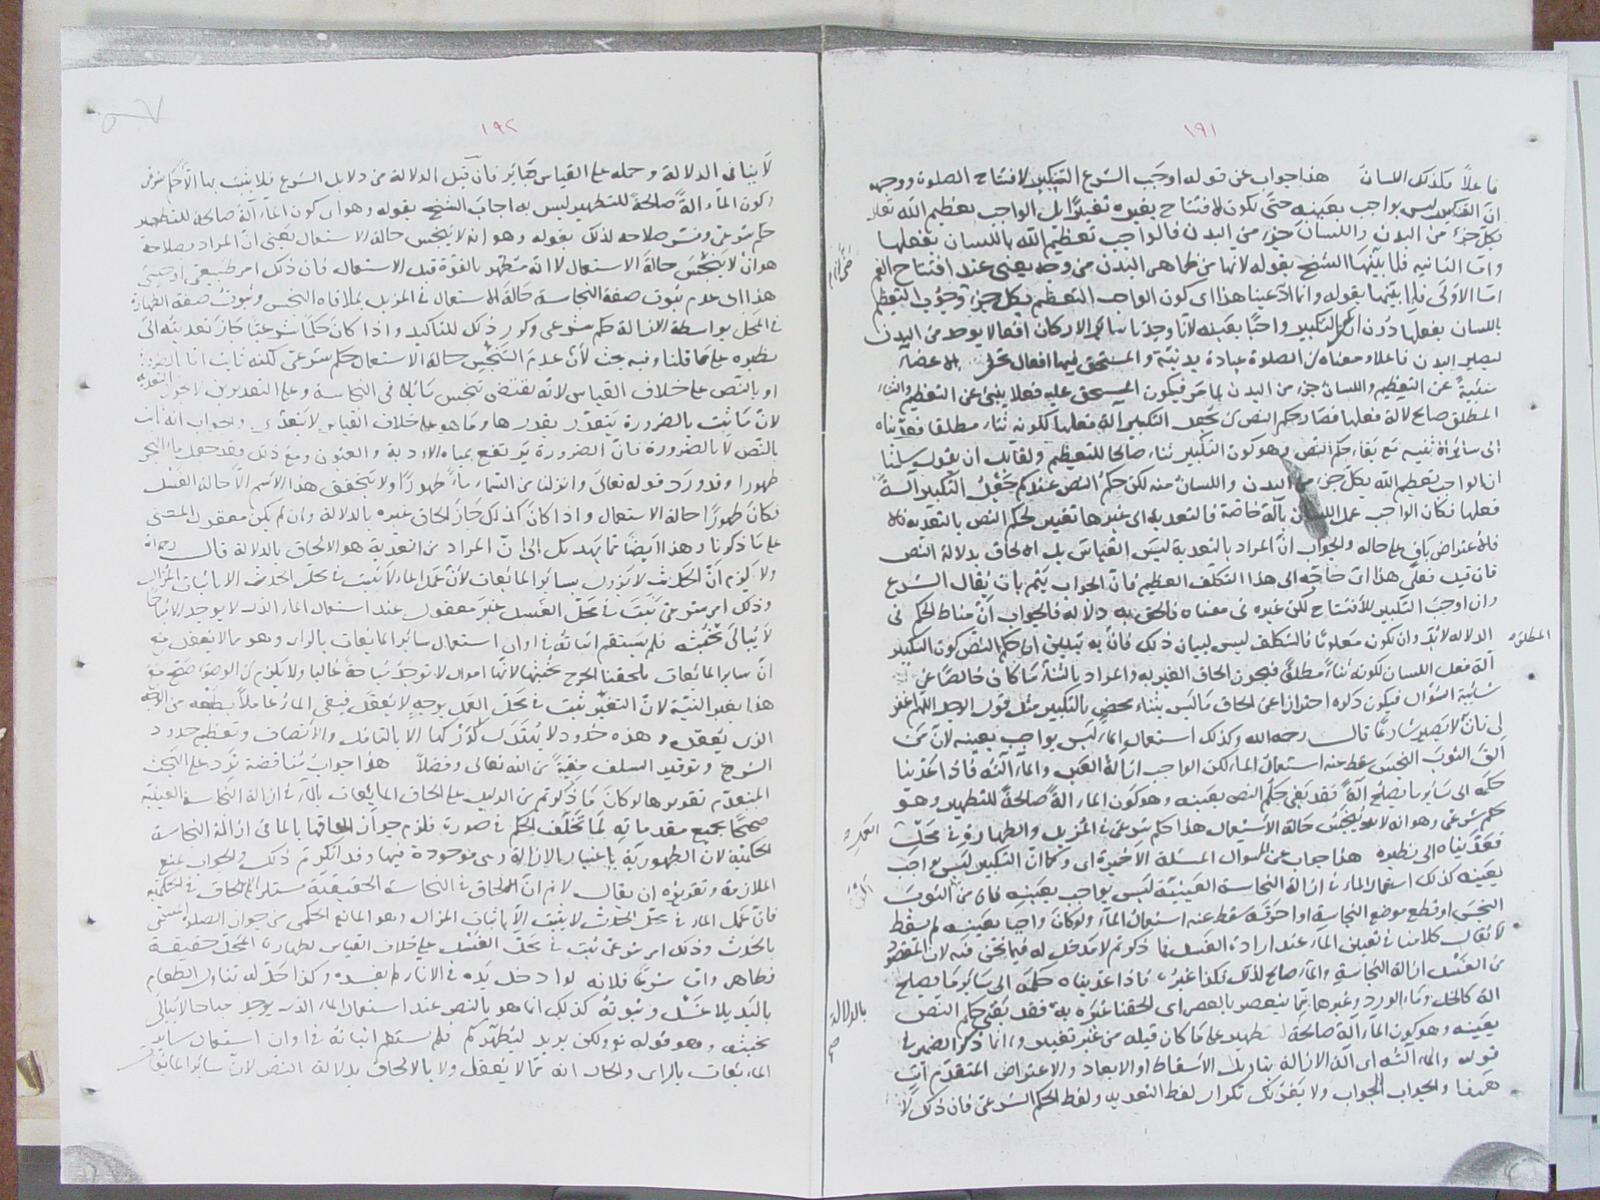 ١٩١
فاعلا فكذلك اللسان هذا جواب عن قوله اوجب الشرع التكبير لافتتاح الصلوة ووجهه
ان التكبير ليس بواجب بعينه حتى يكون الافتتاح بغيره تغييرا بل الواجب تعظيم الله تعالى
بكل جزء من البدن واللسان جزء من البدن فالواجب تعظيم الله باللسان بفعلها
واما الثانية فلما بينها الشيخ بقوله لانها من ظاهر البدن من وجه يعني عند افتتاح الفم
اما الاولى فلما بينها بقوله وانما ادعينا هذا اى كون الواجب التعظيم بكل جزء وجوب التعظيم
باللسان بفعلها دون ان التكبير واجبا بعينه لانا وجدنا سائر الاركان افعالا توجد من البدن
ليصير البدن فاعلا ومعناه ان الصلوة عبادة بدنية والمستحق فيها افعال على الاعضاء
منبئة عن التعظيم واللسان جزء من البدن لما مر فيكون المستحق عليه فعلا ينبئ عن التعظيم والثناء
المطلق صالح لالة فعلها فصار حكم النص ان يجعل التكبير آلة فعلها لكونه ثناء مطلقا فعديناه
الى سائر اثنيه مع بقاء حكم النص وهو كون التكبير ثناء صالحا للتعظيم ولقائل ان يقول سلمنا
ان الواجب تعظيم الله بكل جزء من البدن واللسان منه لكن حكم النص عندكم جعل التكبير آلة
فعلها فكان الواجب عمل اللسان بآلة خاصة فالتعدية الى غيرها تغيير لحكم النص بالتعدية
فالاعتراض باق على حاله والجواب ان المراد بالتعدية ليس القياس بل الالحاق بدلالة النص
فان قيل فعلى هذا اى حاجة الى هذا التكلف العظيم فان الجواب يتم بان يقال الشرع
وان اوجب التكبير للافتتاح لكن غيره في معناه فالحق به دلالة فالجواب ان مناط الحكم في
الدلالة لابد وان يكون معلوما فالتكلف ليس لبيان ذلك فانه به تبين ان حكم النص كون التكبير
آلة فعل اللسان لكونه ثناء مطلقا فيجوز الحاق الغير به والمراد بالثناء ما كان خالصا عن
شائبة السؤال فيكون ذكره احترازا عن الحاق ما ليس بثناء محض بالتكبير مثل قول الرجل اللهم اغفر
لي فانه لا يصير شارعا قال رحمه الله وكذلك استعمال الماء ليس بواجب بعينه لان من
القى الثوب النجس سقط عنه استعمال الماء لكن الواجب ازالة العين والماء آلته فاذا عدينا
حكمه الى سائر ما يصلح آلة فقد بقي حكم النص بعينه وهو كون الماء آلة صالحة للتطهير وهو
حكم شرعي وهو انه لا يتنجس حالة الاستعمال هذا حكم شرعي في المزيل والطهارة في محل
فعديناه الى نظيره هذا جواب عن السوال المسئلة الاخيرة اى وكما ان التكبير ليس بواجب
بعينه كذلك استعمال الماء في ازالة النجاسة العينية ليس بواجب بعينه فان من القى الثوب
النجس او قطع موضع النجاسة او احرقه سقط عنه استعمال الماء ولو كان واجبا بعينه لم يسقط
لا يقال كلامنا في تعيين الماء عند ارادة الغسل فما ذكرتم لا مدخل له فيما نحن فيه لان المقصود
من الغسل ازالة النجاسة والماء صالح لذلك فكذا غيره فاذا عدينا حكمه الى سائر ما يصلح
آلة كالخل وماء الورد وغيرها مما ينعصر بالعصر اى الحقنا غيره به فقد بقي حكم النص
بعينه وهو كون الماء آلة صالحة للتطهير على ما كان قبله من غير تغيير وانما ذكر الضمير في
قوله والماء آلته اى آلة الازالة بتاويل الاسقاط او الابعاد والاعتراض المتقدم آت
ههنا والجواب الجواب ولا يغرنك تكرار لفظ التعدية ولفظ الحكم الشرعي فان ذلك لا
المطلق
بالدلالة
صح
١٩٢
لا ينافي الدلالة وحمله على القياس جائز فان قيل الدلالة من دلايل الشرع فلا يثبت بها الا حكم شرعي
وكون الماء آلة صالحة للتطهير ليس به اجاب الشيخ بقوله وهو ان كون الماء آلة صالحة للتطهير
حكم شرعي وفسر صلاحه لذلك بقوله وهو انه لا يتنجس حالة الاستعمال يعني ان المراد بصلاحه
هو ان لا يتنجس حالة الاستعمال لا انه مطهر بالقوة قبل الاستعمال فان ذلك امر طبيعي او حسي
هذا اى عدم ثبوت صفة النجاسة حالة الاستعمال في المزيل بملاقاة النجس وثبوت صفة الطهارة
في المحل بواسطة الازالة حكم شرعي وكرر ذلك للتاكيد واذا كان حكما شرعيا جاز تعديته الى
نظيره على ما قلنا وفيه بحث لان عدم التنجس حالة الاستعمال حكم شرعي لكنه ثابت اما بالضرورة
او بالنص على خلاف القياس لانه يقتضي تنجس سائله في النجاسة وعلى التقديرين لا يجوز التعدية
لان ما يثبت بالضرورة يتقدر بقدرها وما هو على خلاف القياس لا يتعدى والجواب انه ثابت
بالنص لا بالضرورة فان الضرورة يرتفع بمياه الاودية والعيون ومع ذلك فقد جعل ماء البحر
طهورا وقد ورد قوله تعالى وانزلنا من السماء ماء طهورا ولا يتحقق هذا الاسم الا حالة الغسل
فكان طهورا حالة الاستعمال واذا كان كذلك جاز الحاق غيره بالدلالة وان لم يكن معقول المعنى
على ما ذكرنا وهذا ايضا مما يهديك الى ان المراد من التعدية هو الالحاق بالدلالة قال رحمه الله
ولا يلزم ان الحدث لا يزول بسائر المائعات لان عمل الماء لا يثبت في محل الحدث الا باثبات المزال
وذلك امر شرعي ثبت في محل الغسل غير معقول عند استعمال الماء الذي لا يوجد الا مباحا
لا يبالى بخبثه فلم يستقم اثباته في اوان استعمال سائر المائعات بالراى وهو مما لا يعقل مع
ان سائر المائعات يلحقنا الحرج بخبثها لانها اموال لا توجد مباحة غالبا ولا يلزم ان الوضوء صح مع
هذا بغير النية لان التغير ثبت في محل العمل بوجه لا يعقل فبقي الماء عاملا بطبعه من الوجه
الذي يعقل وهذه حدود لا يهتدى لدركها الا بالتامل والانصاف وتعظيم حدود
الشرع وتوقير السلف منة من الله تعالى وفضلا هذا جواب مناقضة ترد على النكتة
المتقدمة تقريرها لو كان ما ذكرتم من الدليل على الحاق المائعات بالماء في ازالة النجاسة العينية
صحيحا بجميع مقدماته لما تخلف الحكم في صورة فلزم جواز الحاقها بالماء في ازالة النجاسة
الحكمية لان الطهورية باعتبار الازالة وهي موجودة فيها وقد انكرتم ذلك والجواب بمنع
الملازمة وتقريره ان يقال لا نم ان الالحاق في النجاسة الحقيقية مستلزم للالحاق في الحكمية
فان عمل الماء في محل الحدث لا يثبت الا باثبات المزال وهو المانع الحكمي من جواز الصلوة المسمى
بالحدث وذلك امر شرعي ثبت في محل الغسل على خلاف القياس لطهارة المحل حقيقة
فظاهر واما شرعا فلانه لو ادخل يده في الاناء لم يفسده وكذا حل له تناول الطعام
باليد بلا غسل وثبوته كذلك انما هو بالنص عند استعمال الماء الذي يوجد مباحا لا يبالى
بخبثه وهو قوله تع ولكن يريد ليطهركم فلم يستقم اثباته في اوان استعمال ساير
المائعات بالراى والحال انه مما لا يعقل ولا بالالحاق بدلالة النص لان سائر المائعات